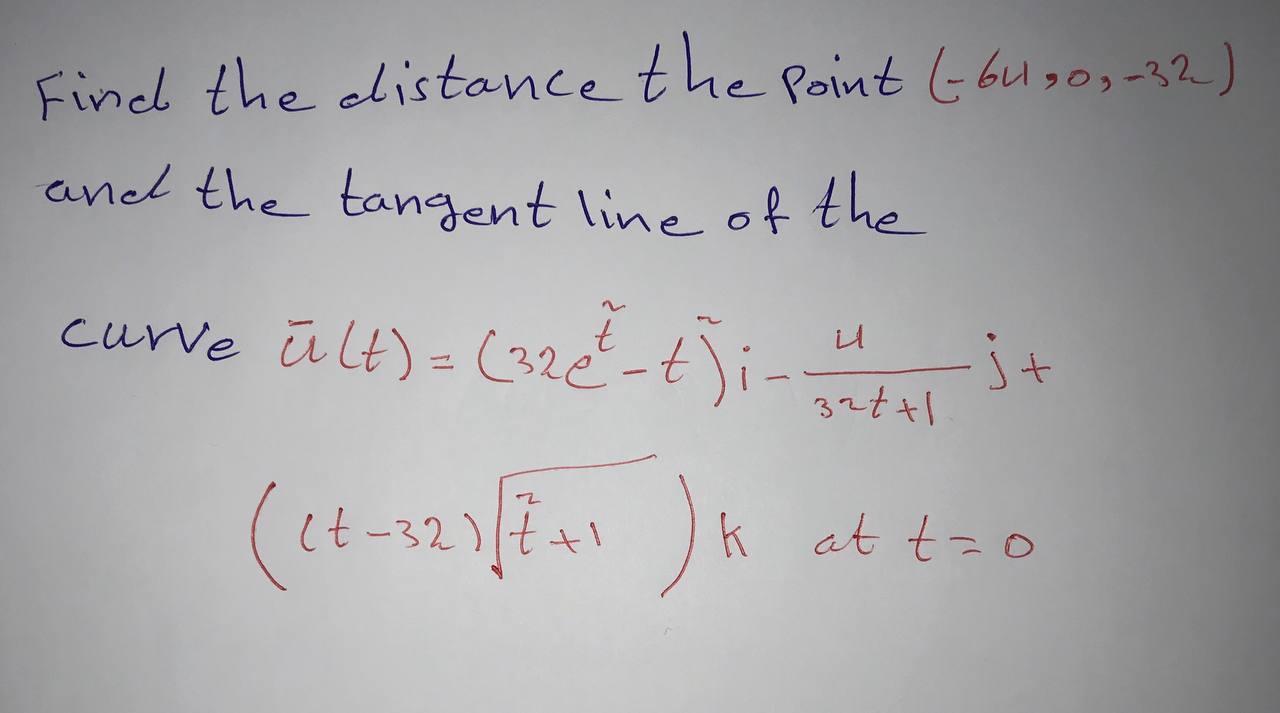 Find the distance the point (-64,0,-32)
and the tangent line of the
curve ū(t) = (32e^{t²} - t²)i - \frac{4}{32t+1} j +
((t-32)√(t²+1))k at t=0